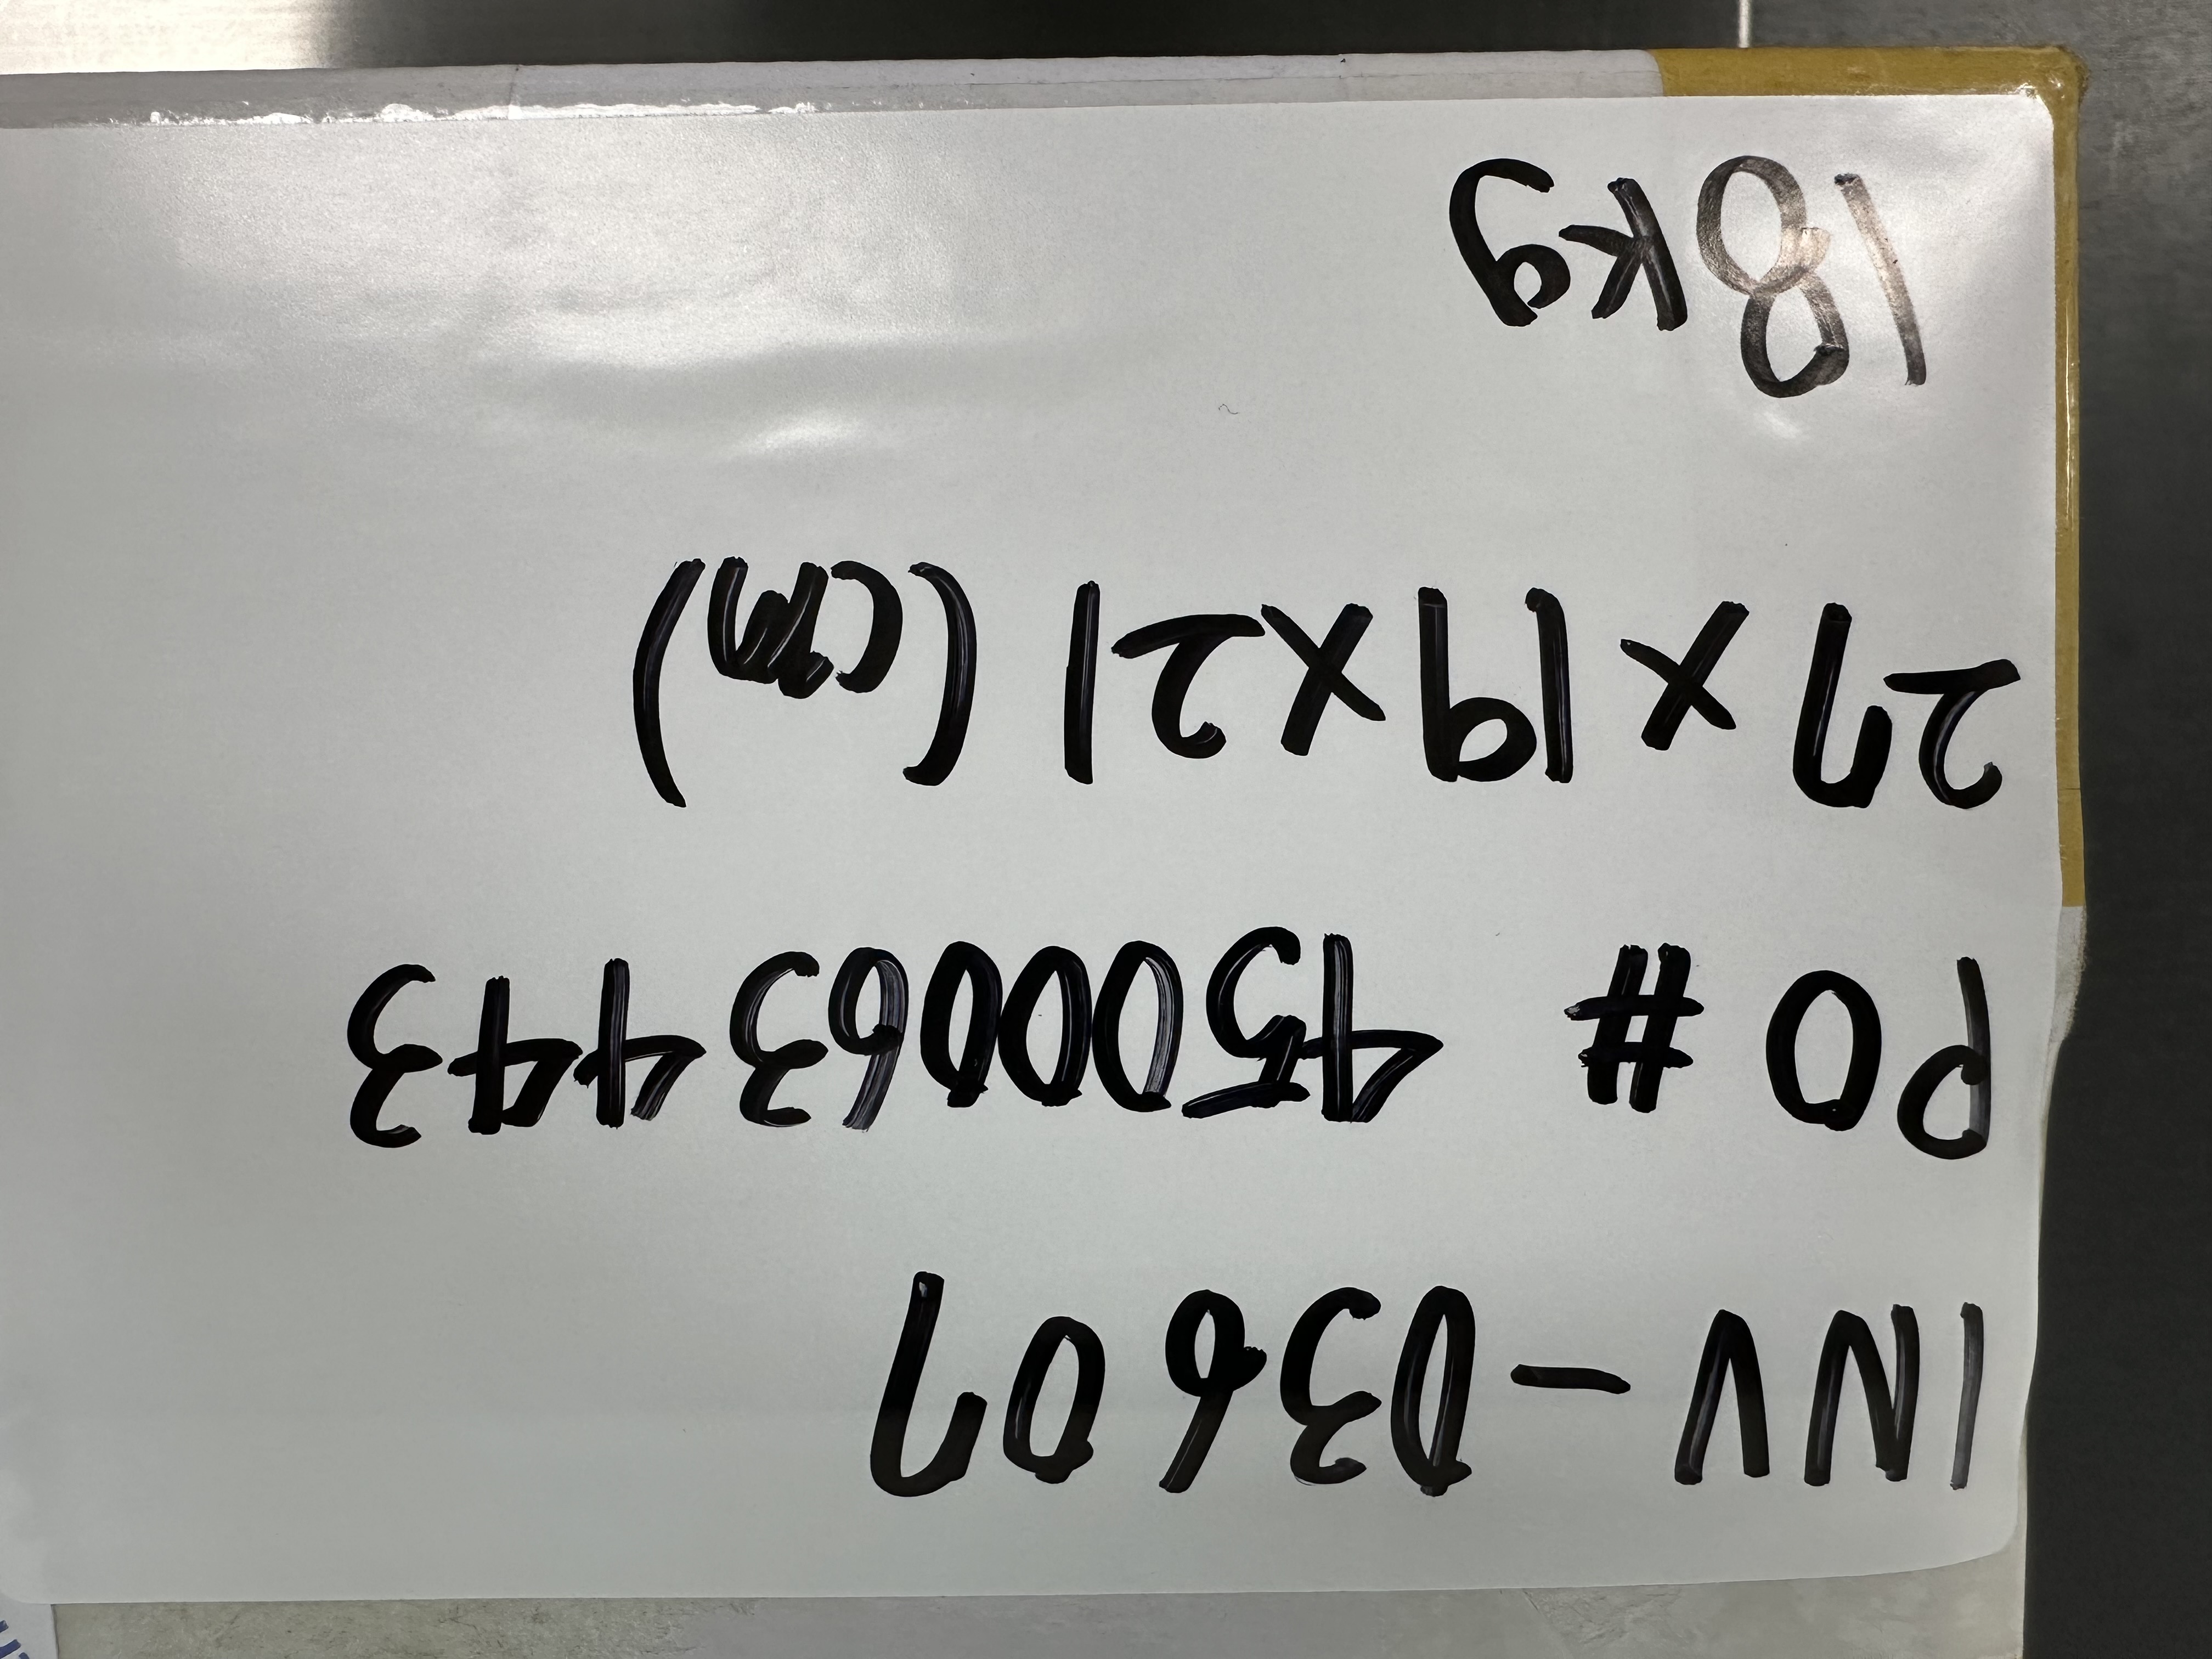 INV-03607
PO # 4500063443
27 x 19 x 21 (cm)
18 kg